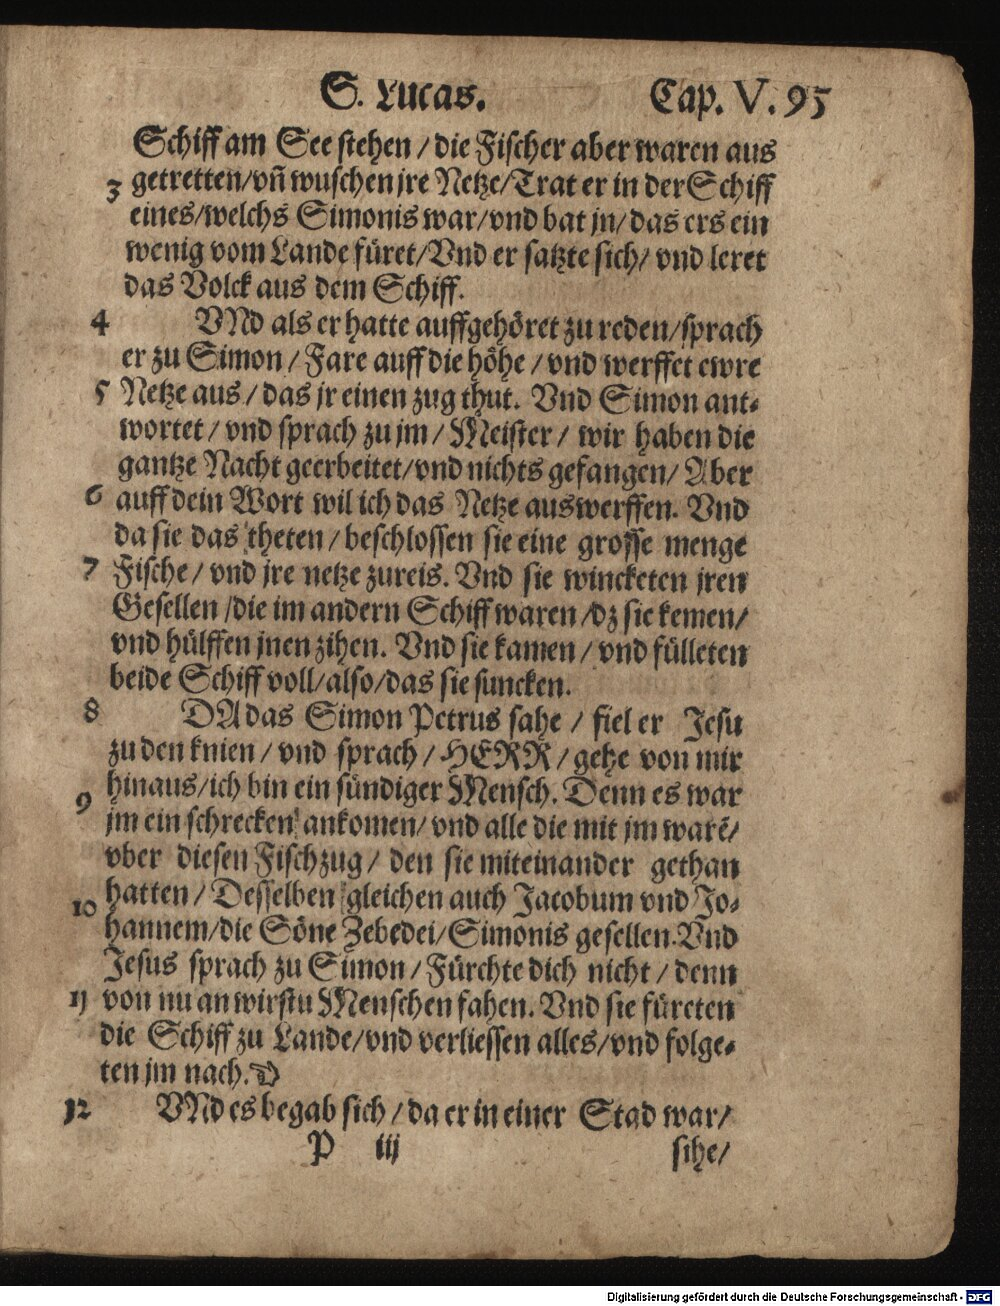 S. Lucas. Cap. V. 95
Schiff am See stehen / die Fischer aber waren aus
3 getretten/vñ wuschen jre Netze/Trat er in der Schiff
eines/welchs Simonis war/vnd bat jn/das ers ein
wenig vom Lande füret/Vnd er satzte sich/ vnd leret
das Volck aus dem Schiff.
4 VNd als er hatte auffgehöret zu reden/sprach
er zu Simon / Fare auff die höhe / vnd werffet ewre
5 Netze aus / das jr einen zug thut. Vnd Simon ant⸗
wortet / vnd sprach zu jm / Meister / wir haben die
gantze Nacht geerbeitet/vnd nichts gefangen/ Aber
6 auff dein Wort wil ich das Netze auswerffen. Vnd
da sie das theten / beschlossen sie eine grosse menge
7 Fische / vnd jre netze zureis. Vnd sie wincketen jren
Gesellen /die im andern Schiff waren /dz sie kemen/
vnd hülffen jnen zihen. Vnd sie kamen / vnd fülleten
beide Schiff voll/also/das sie suncken.
8 DA das Simon Petrus sahe / fiel er Jesu
zu den knien / vnd sprach / HERR / gehe von mir
hinaus/ich bin ein sündiger Mensch. Denn es war
9 jm ein schrecken ankomen/ vnd alle die mit jm warē/
vber diesen Fischzug / den sie miteinander gethan
10 hatten / Desselben gleichen auch Jacobum vnd Jo⸗
hannem/die Söne Zebedei/Simonis gesellen. Vnd
Jesus sprach zu Simon / Fürchte dich nicht / denn
11 von nu an wirstu Menschen fahen. Vnd sie füreten
die Schiff zu Lande/vnd verliessen alles/vnd folge⸗
ten jm nach.
12 VNd es begab sich / da er in einer Stad war/
P iij sihe/
Digitalisierung gefördert durch die Deutsche Forschungsgemeinschaft - DFG